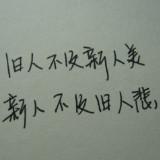 旧人不及新人美
新人不及旧人悲,